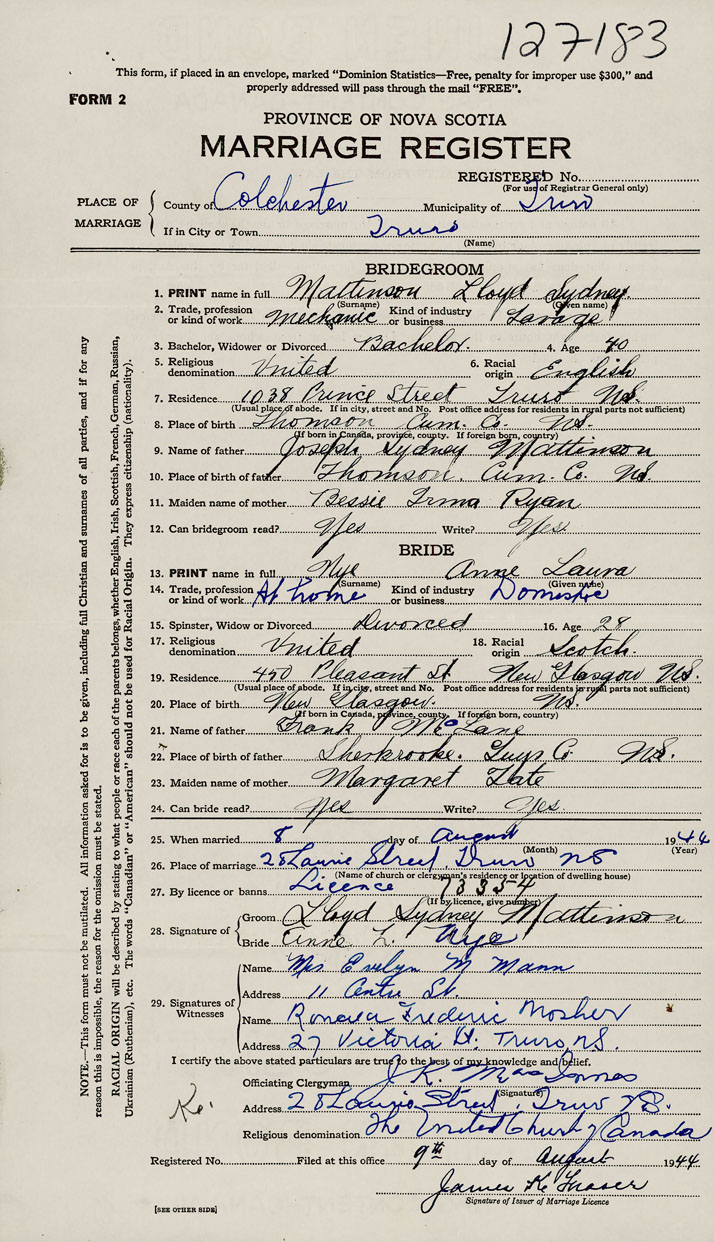 127183
This form, if placed in an envelope, marked "Dominion Statistics—Free, penalty for improper use $300," and
properly addressed will pass through the mail "FREE".
FORM 2
PROVINCE OF NOVA SCOTIA
MARRIAGE REGISTER
REGISTERED No.
(For use of Registrar General only)
PLACE OF MARRIAGE
County of Colchester Municipality of Truro
If in City or Town Truro
(Name)
BRIDEGROOM
1. PRINT name in full Mattinson Lloyd Sydney
(Surname) (Given name)
2. Trade, profession or kind of work Mechanic Kind of industry or business Garage
3. Bachelor, Widower or Divorced Bachelor. 4. Age 40
5. Religious denomination United 6. Racial origin English
7. Residence 1038 Prince Street Truro N.S.
(Usual place of abode. If in city, street and No. Post office address for residents in rural parts not sufficient)
8. Place of birth Thomson Cum. Co. N.S.
(If born in Canada, province, county. If foreign born, country)
9. Name of father Joseph Sydney Mattinson
10. Place of birth of father Thomson. Cum. Co. N.S.
11. Maiden name of mother Bessie Irma Ryan
12. Can bridegroom read? Yes Write? Yes.
BRIDE
13. PRINT name in full Nye Anne Laura
(Surname) (Given name)
14. Trade, profession or kind of work At home Kind of industry or business Domestic
15. Spinster, Widow or Divorced Divorced 16. Age 28
17. Religious denomination United 18. Racial origin Scotch.
19. Residence 450 Pleasant St. New Glasgow N.S.
(Usual place of abode. If in city, street and No. Post office address for residents in rural parts not sufficient)
20. Place of birth New Glasgow. N.S.
(If born in Canada, province, county. If foreign born, country)
21. Name of father Frank McLane
22. Place of birth of father Sherbrooke. Guys Co. N.S.
23. Maiden name of mother Margaret Tate
24. Can bride read? Yes Write? Yes.
25. When married 8 day of August 1944
(Month) (Year)
26. Place of marriage 28 Laurie Street, Truro NS
(Name of church or clergyman's residence or location of dwelling house)
27. By licence or banns Licence 73354
(If by licence, give number)
28. Signature of
Groom Lloyd Sydney Mattinson
Bride Anne L. Nye
29. Signatures of Witnesses
Name Mrs Evelyn M Mann
Address 11 Centre St.
Name Frederic Mosher
Address 27 Victoria St. Truro, N.S.
I certify the above stated particulars are true to the best of my knowledge and belief.
Officiating Clergyman J. K.
(Signature)
Address 28 Laurie Street, Truro N.S.
Religious denomination The United Church of Canada
Registered No. Filed at this office 9th day of August 1944
James K. Fraser
Signature of Issuer of Marriage Licence
[SEE OTHER SIDE]
NOTE.—This form must not be mutilated. All information asked for is to be given, including full Christian and surnames of all parties, and if for any
reason this is impossible, the reason for the omission must be stated.
RACIAL ORIGIN will be described by stating to what people or race each of the parents belongs, whether English, Irish, Scottish, French, German, Russian,
Ukrainian (Ruthenian), etc. The words "Canadian" or "American" should not be used for Racial Origin. They express citizenship (nationality).